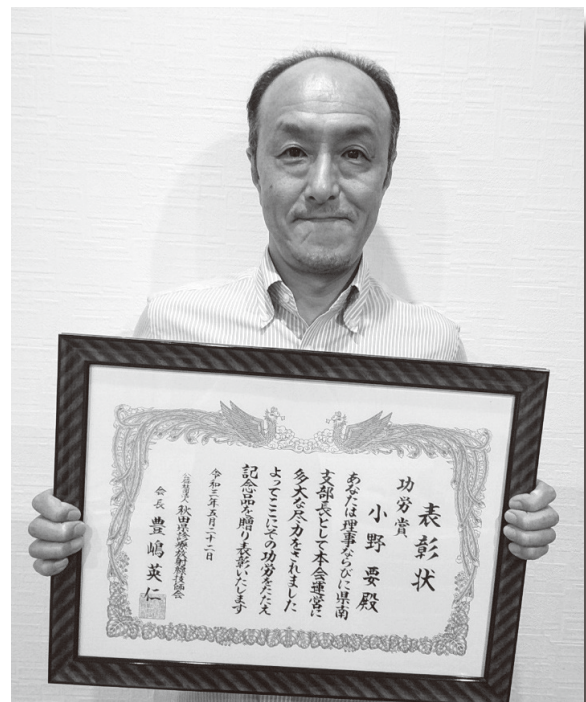 表彰状
功労賞
小野 要殿
あなたは理事ならびに県南
支部長として本会運営に
多大な尽力をされました
よってここにその功労をたたえ
記念品を贈り表彰いたします
令和三年五月二十二日
公益社団法人 秋田県診療放射線技師会
会長 豊嶋英仁